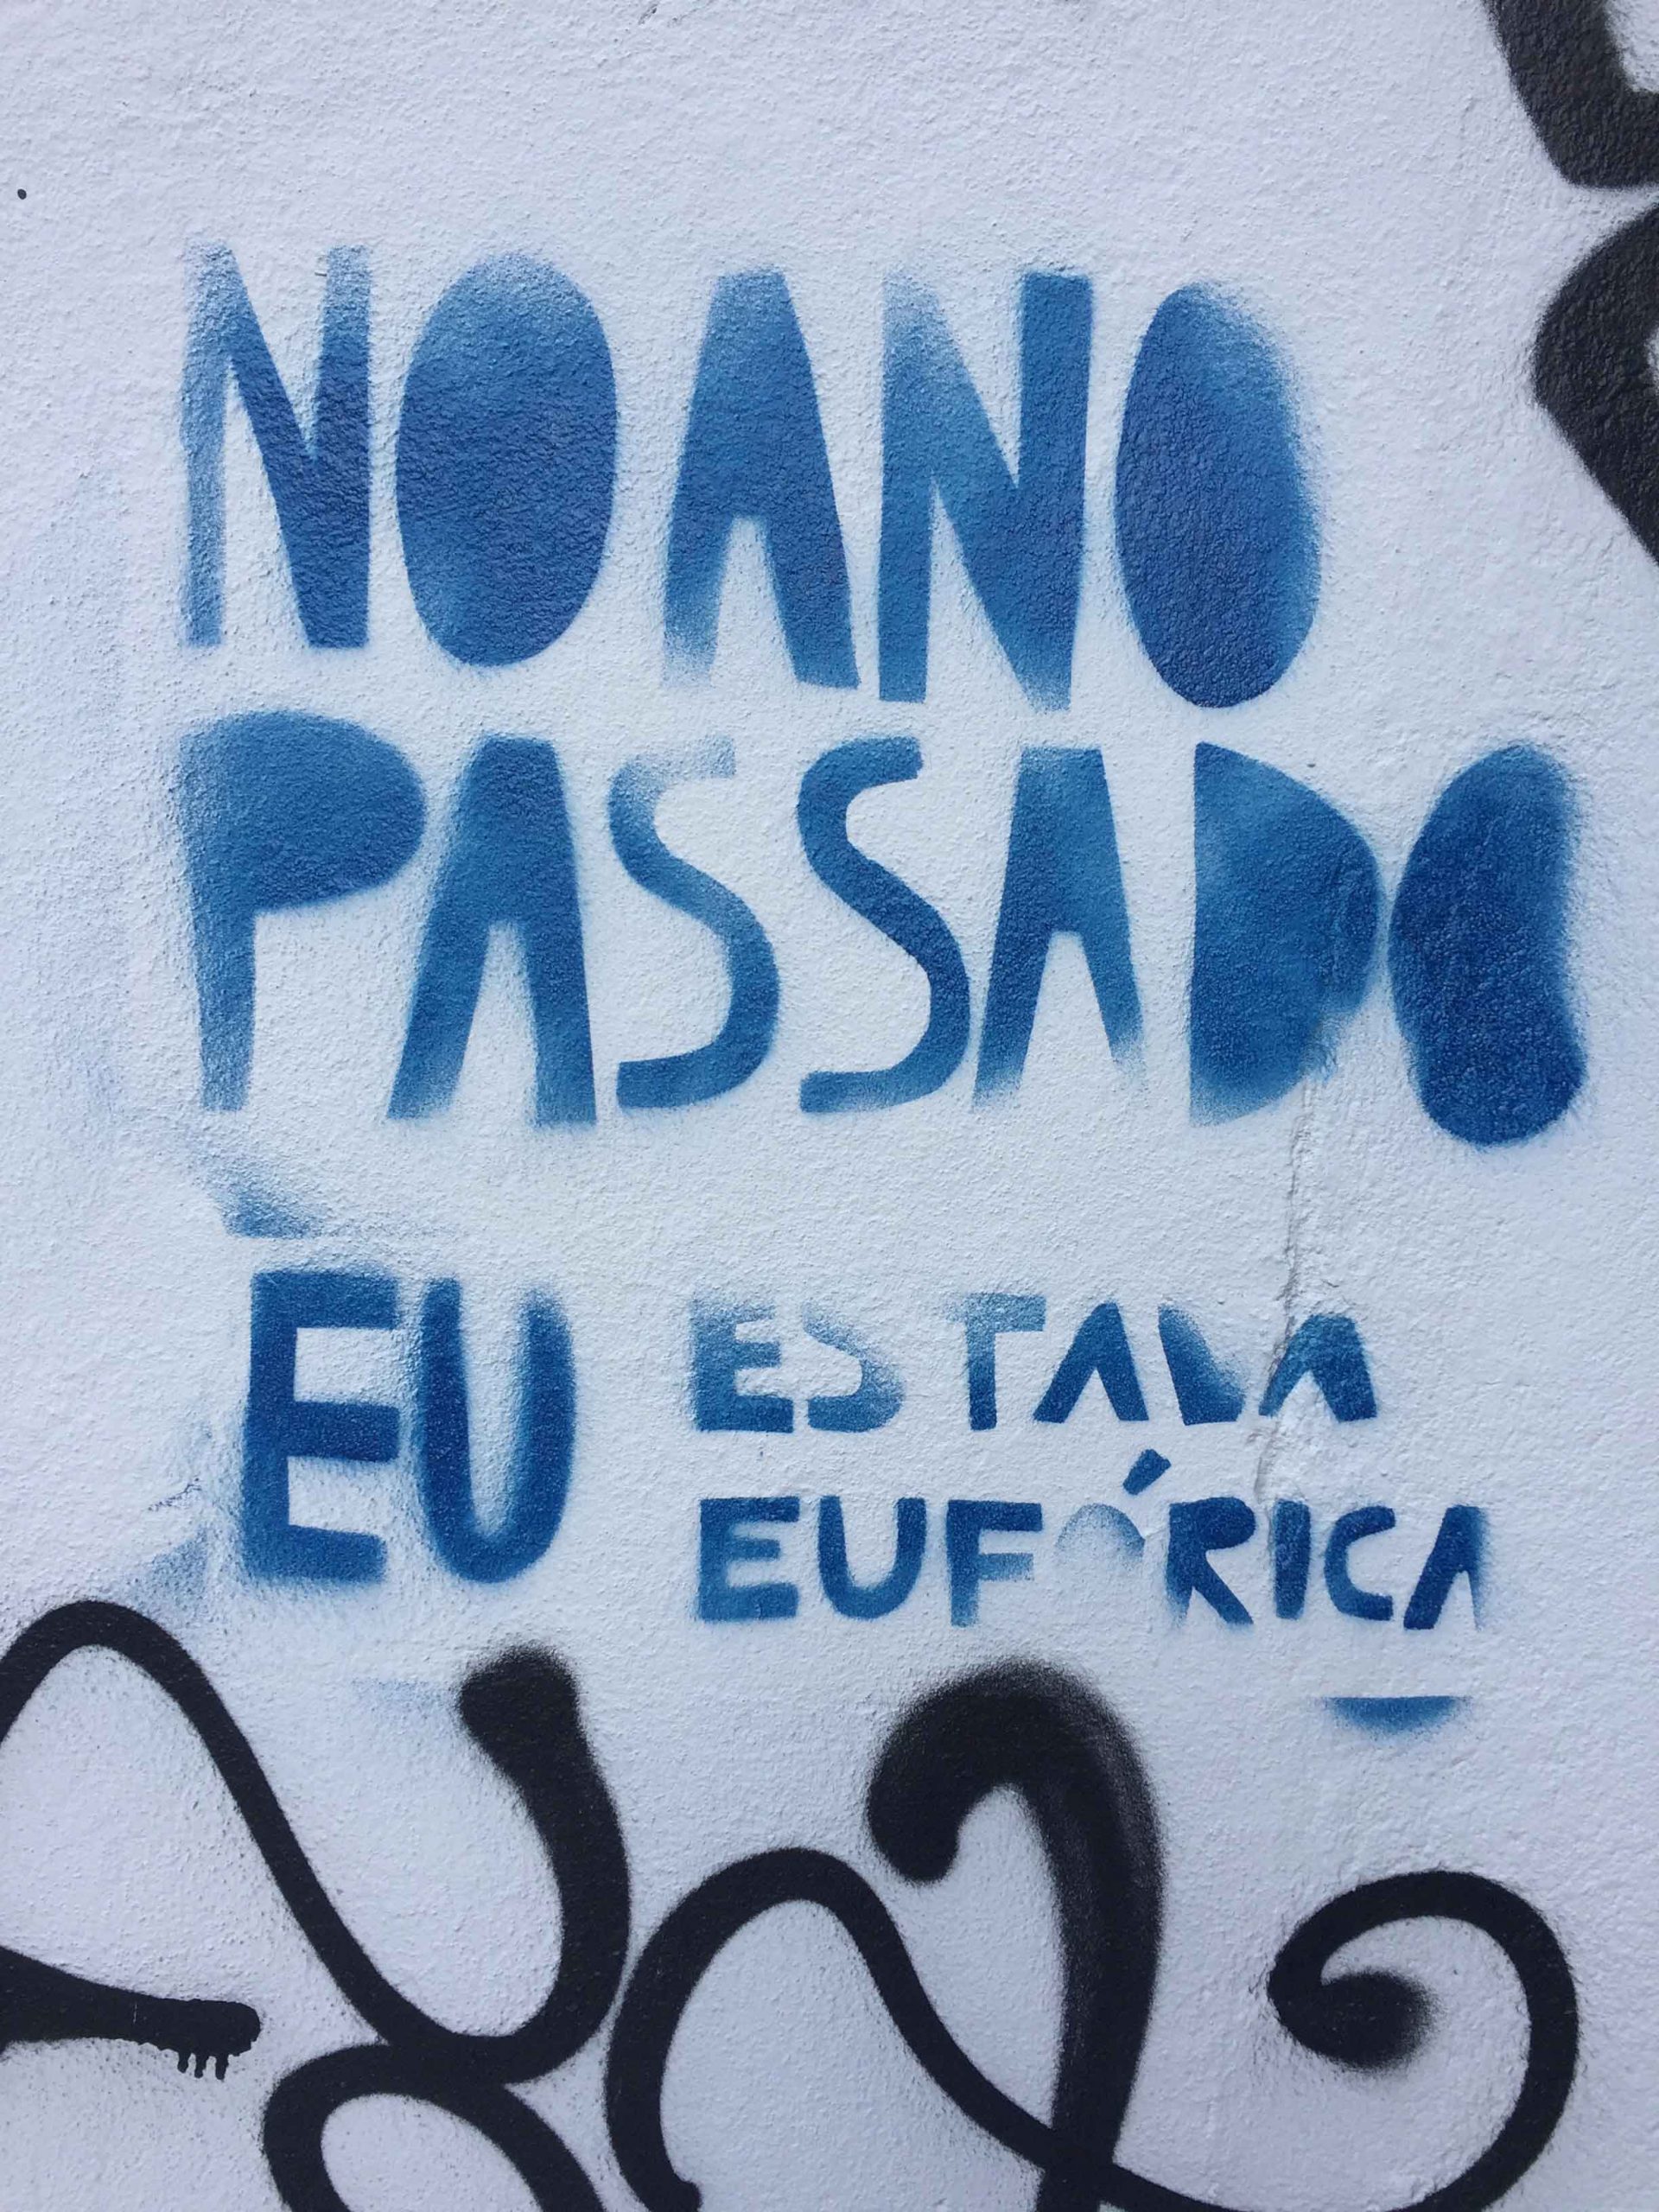 NO ANO
PASSADO
EU ESTAVA
EUFÓRICA